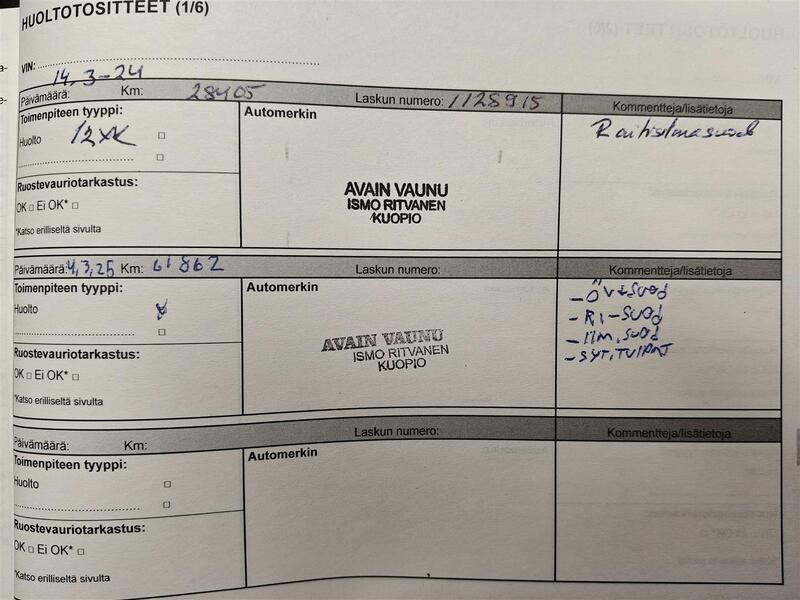 HUOLTOTOSITTEET (1/6)
VIN:
14.3-24
Päivämäärä: Km: 28405 Laskun numero: 1128915 Kommentteja/lisätietoja
Toimenpiteen tyyppi: Automerkin
Huolto 12xK Raitisilmasuod
AVAIN VAUNU
ISMO RITVANEN
KUOPIO
Ruostevauriotarkastus:
OK □ Ei OK* □
*Katso erilliseltä sivulta
Päivämäärä: 4.3.25 Km: 61862 Laskun numero: Kommentteja/lisätietoja
Toimenpiteen tyyppi: Automerkin
- ÖV+SUOD
Huolto x
- RI-SUOD
- IIM.SUOD
- SYT.TULPAT
AVAIN VAUNU
ISMO RITVANEN
KUOPIO
Ruostevauriotarkastus:
OK □ Ei OK* □
*Katso erilliseltä sivulta
Päivämäärä: Km: Laskun numero: Kommentteja/lisätietoja
Toimenpiteen tyyppi: Automerkin
Huolto □
Ruostevauriotarkastus:
OK □ Ei OK* □
*Katso erilliseltä sivulta